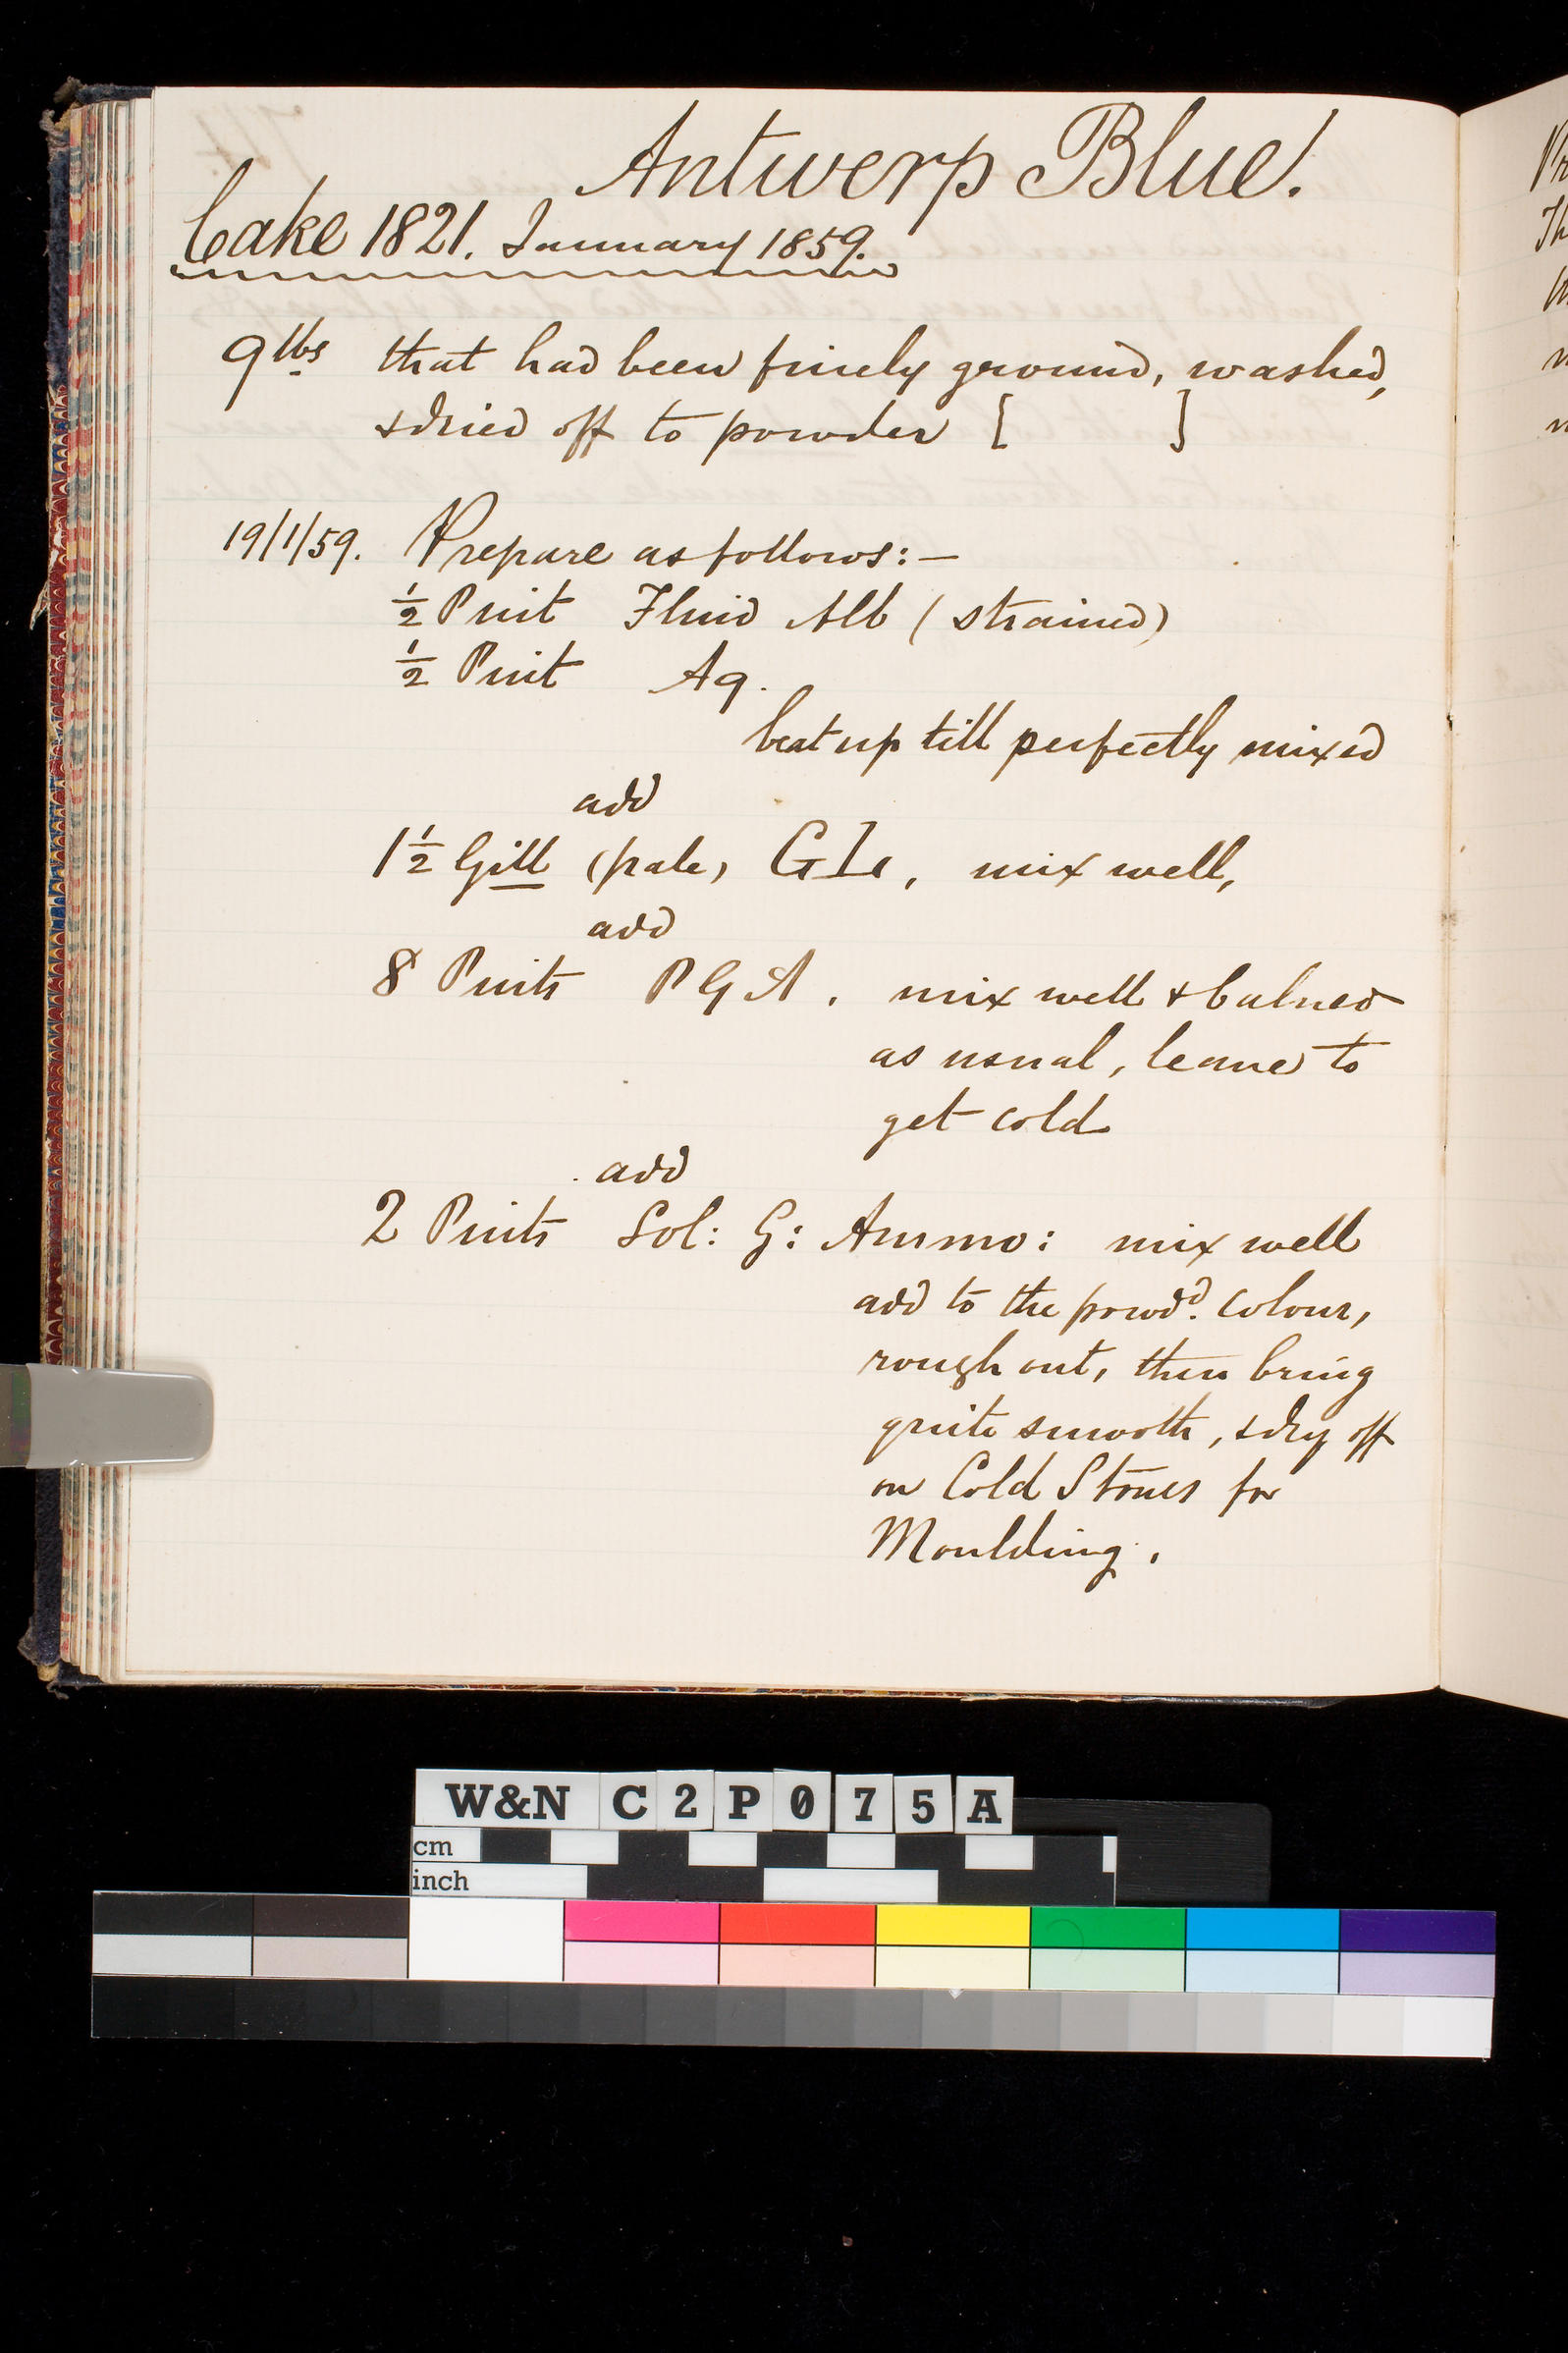 Antwerp Blue.
Cake 1821. January 1859.
9 lbs that had been finely ground, washed,
& dried off to powder [ ]
19/1/59. Prepare as follows:—
½ Pint Fluid Alb (strained)
½ Pint Aq.
beat up till perfectly mixed
add
1½ Gill (pale) G L, mix well,
add
8 Pints P G A. mix well & balneo
as usual, leave to
get cold
add
2 Pints Sol: G: Ammo: mix well
add to the powdd. colour,
rough out, then bring
quite smooth, & dry off
on Cold Stones for
Moulding.
Th
W&N C2P075A
cm
inch